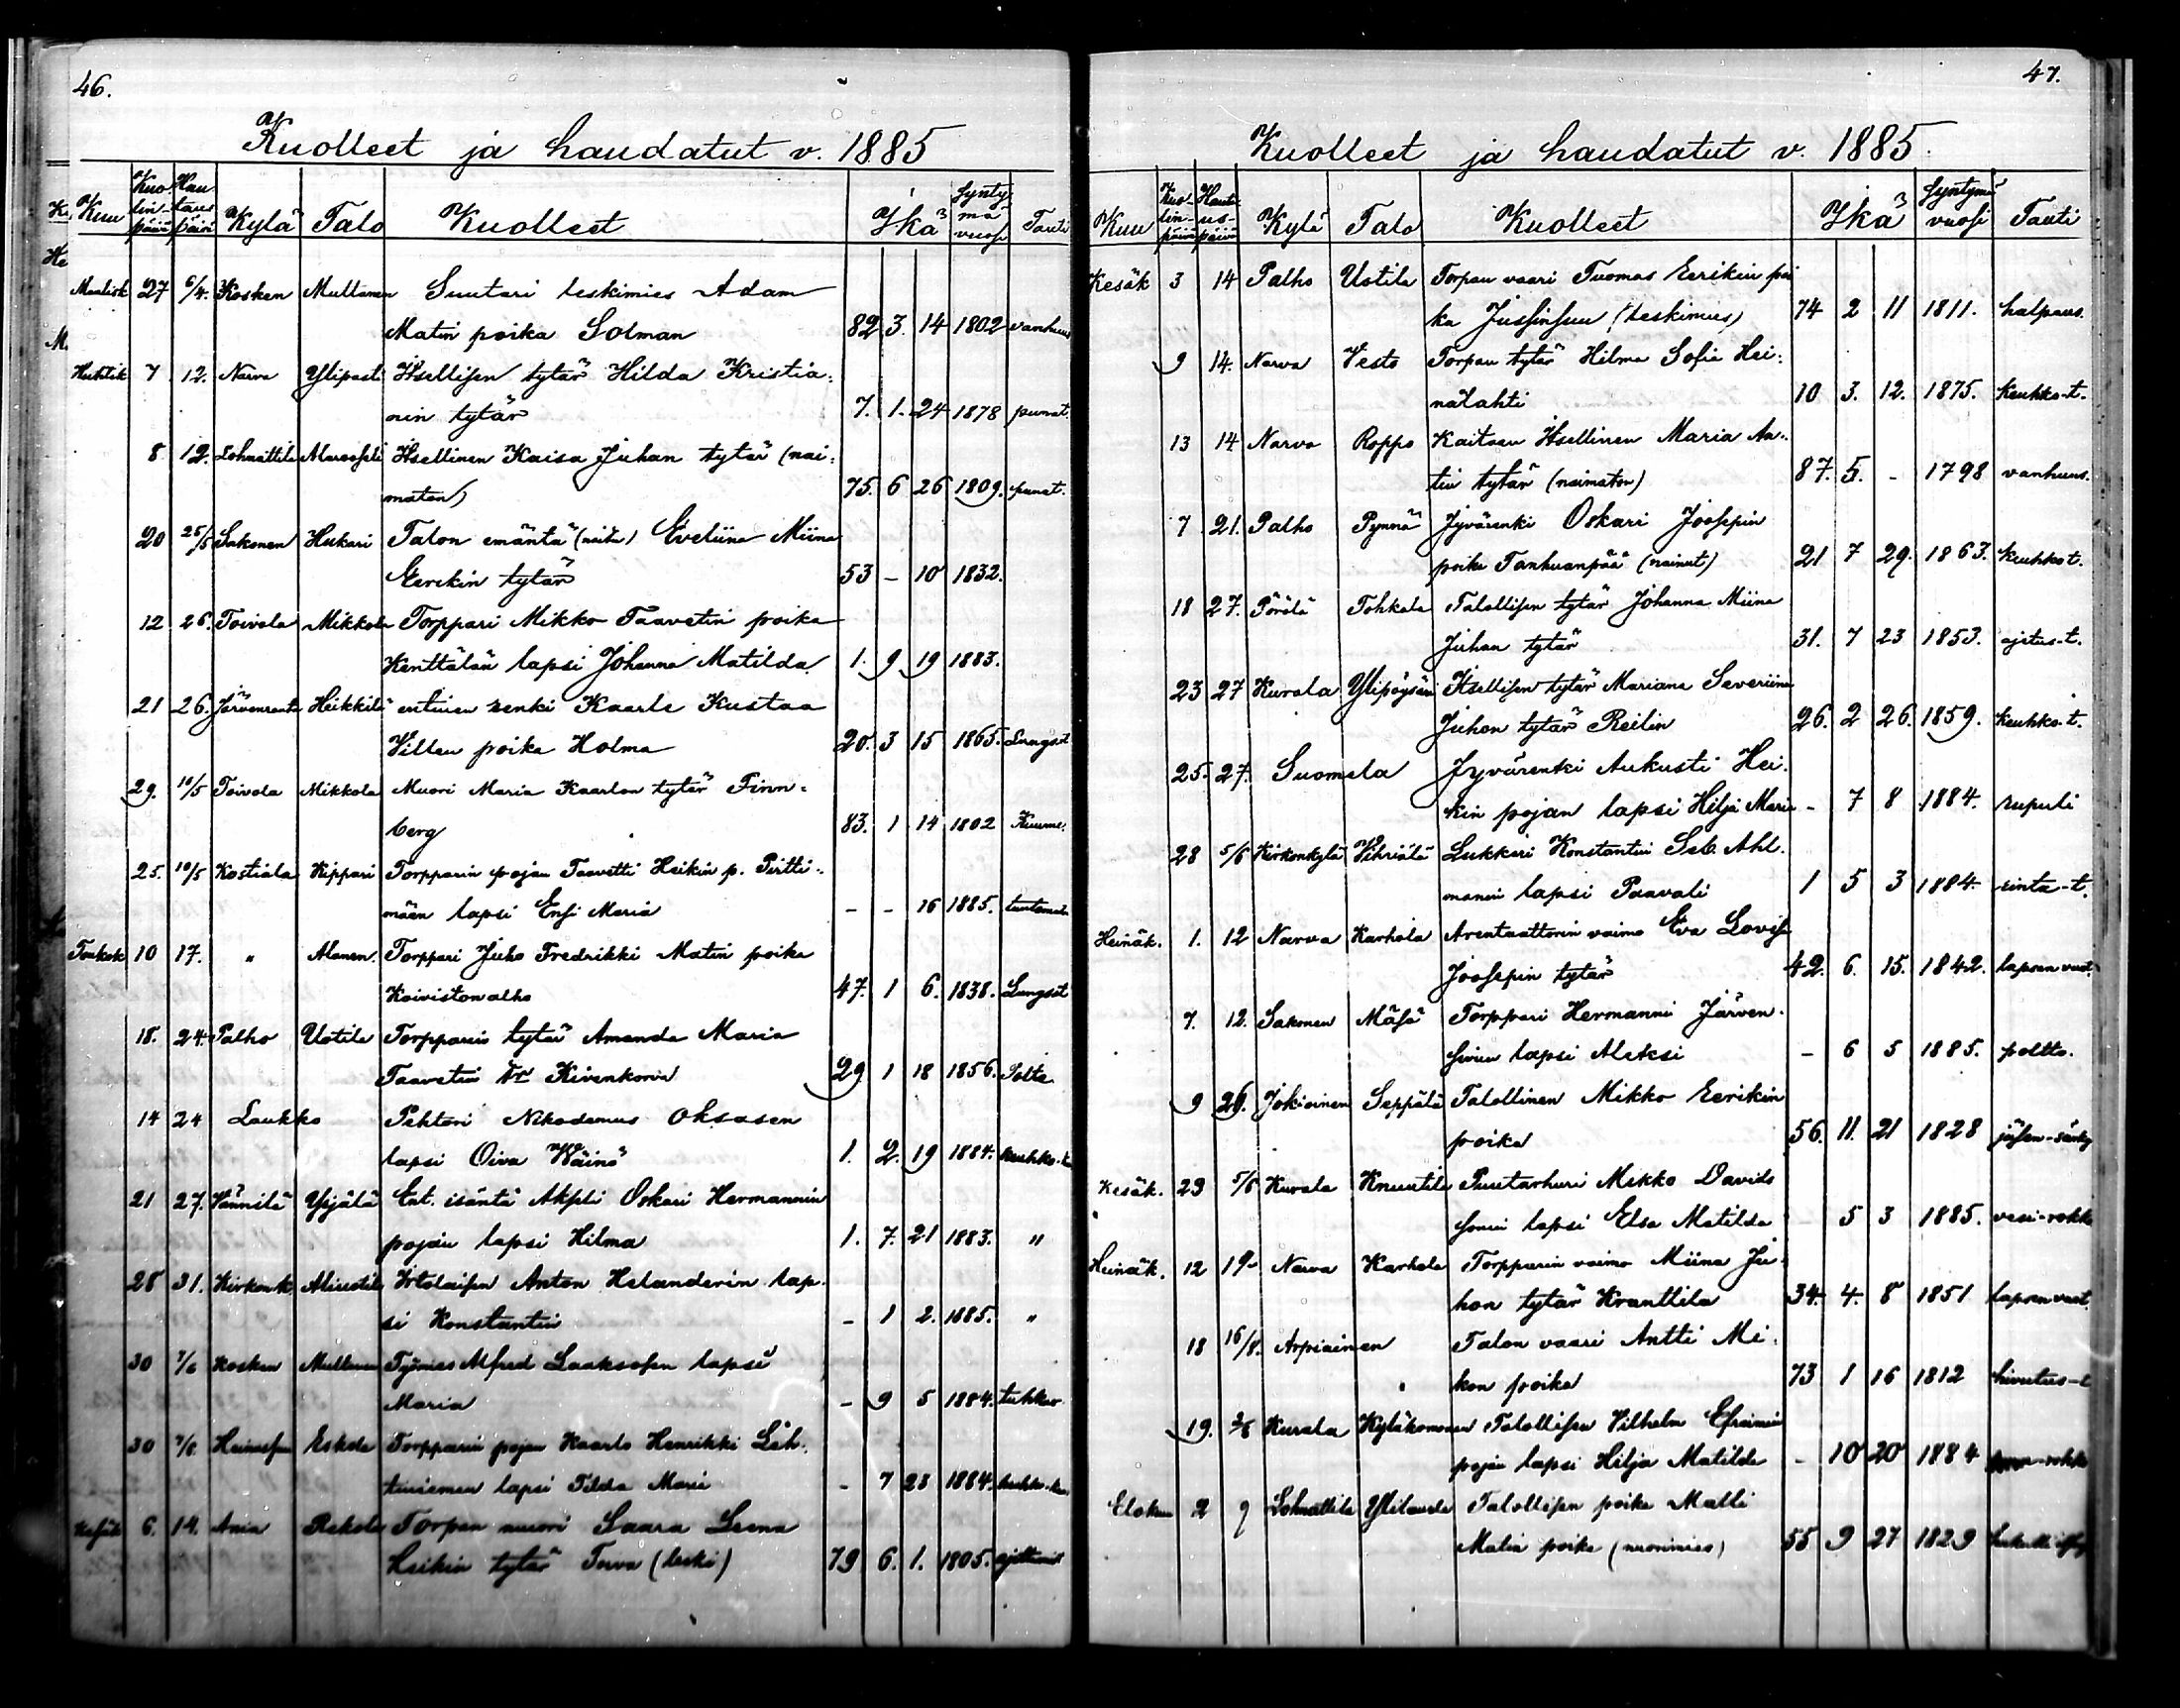 46.
Kuolleet ja haudatut v. 1885
Kuu Kuo-lin-päivä Hau-taus päivä Kylä Talo Kuolleet Ikä Syntymä vuosi Tauti
Maalisk 27 6/4. Kosken Multanen Suutari leskimies Adam
Matin poika Solman 82 3. 14 1802 vanhuus
Huhtik 7 12. Narva Ylipasti Itsellisen tytär Hilda Kristia-
nin tytär 7. 1. 24 1878 punat.
8 12. Lohmattila Itsellinen Kaisa Juhan tytär (nai-
maton) 75. 6 26 1809. punat.
20 25/5 Sakonen Hukari Talon emäntä Eveliina Miina
Eerikin tytär 53 – 10 1832.
12 26. Toivola Mikkola Torppari Mikko Taavetin poika
Kenttälän lapsi Johanna Matilda 1. 9 19 1883.
21 26. Järvenranta Heikkilä entinen renki Kaarle Kustaa
Villen poika Holma 20. 3 15 1865. Lungsot
29. 10/5 Toivola Mikkola Muori Maria Kaarlon tytär Finn-
berg 83. 1 14 1802 Kuume.
25. 10/5 Kostiala Kippari Torpparin pojan Taavetti Heikin p. Pirtti-
mäen lapsi Ensi Maria – – 16 1885. tuntematon
Toukok 10 17. " Alanen. Torppari Juho Fredrikki Matin poika
Koivistonalho 47. 1 6. 1838. Lungsot
18. 24. Palho Uotila Torpparin tytär Amanda Maria
Taavetin tr Kivenkorva 29 1 18 1856. Polte
14 24 Laukko Pehtori Nikodemus Oksasen
lapsi Oiva Wäinö 1. 2. 19 1884. keuhko-
21 27. Vännilä Yrjälä Ent. isäntä Akseli Oskari Hermannin
pojan lapsi Hilma 1. 7. 21 1883. "
28 31. Kirkonk Irtolaisen Anton Helanderin lap-
si Konstantin – 1 2. 1885. "
30 7/6 Kosken Multanen Työmies Alfred Laaksosen lapsi
Maria – 9 5 1884. tuhkar
30 7/6 Eskola Torpparin pojan Kaarlo Henrikki Leh-
tiniemen lapsi Tilda Maria – 7 23 1884. keuhko-
Kesäk 6. 14. Ania Rekola Torpan muori Saara Leena
Heikin tytär Toiva (leski) 79 6. 1. 1805.
47.
Kuolleet ja haudatut v. 1885.
Kuu Kuo-lin-päivä Hauta-us-päivä Kylä Talo Kuolleet Ikä Syntymä vuosi Tauti
Kesäk 3 14 Palho Uotila Torpan vaari Tuomas Eerikin poi
ka Jussinsuu (leskimies) 74 2 11 1811. halpaus.
9 14. Narva Vesto Torpan tytär Hilma Sofia Hei-
nälahti 10 3. 12. 1875. keuhko-t.
13 14 Narva Roppo Kaitsen Itsellinen Maria An-
tin tytär (naimaton) 87. 5. - 1798 vanhuus.
7 21. Palho Pynnä Jyvärenki Oskari Joosepin
poika Tanhuanpää (nainut) 21 7 29. 1863. keuhkot.
18 27. Pörölä Tohkala Talollisen tytär Johanna Miina
Juhan tytär 31. 7 23 1853. ajetus-t.
23 27 Kurala Ylipöysäri Itsellisen tytär Mariana Severiina
Juhon tytär Reilin 26. 2 26. 1859. keuhko-t.
25. 27. Suomela Jyvärenki Aukusti Hei-
kin pojan lapsi Hilja Maria – 7 8 1884. rupuli
28 5/6 Kirkonkylä Vihriälä Lukkari Konstantin Seb. Ahl-
manin lapsi Paavali 1 5 3 1884. rinta-t.
Heinäk. 1. 12 Narva Karhola Arentaattorin vaimo Eva Lovisa
Joosepin tytär 42. 6. 15. 1842. lapsenvuot.
7. 12. Sakonen Mäsä Torppari Hermanni Järven-
sivun lapsi Aleksi – 6 5 1885. poltto.
9 26. Jokioinen Seppälä Talollinen Mikko Eerikin
poika 56. 11. 21 1828
Kesäk. 29 5/6 Kurala Knuutila Puutarhuri Mikko Davids
sonin lapsi Elsa Matilda 5 3 1885. vesi-rokko
Heinäk. 12 19 Narva Karhola Torpparin vaimo Miina Ju-
hon tytär Kranttila 34. 4. 8 1851 lapsenvuot.
18 16/8. Arpiainen Talon vaari Antti Mi-
kon poika 73 1 16 1812 hivutus-t
19. 2/8 Kurala Kyläkomonen Talollisen Vilhelm Efraimin
pojan lapsi Hilja Matilda – 10 20 1884 -rokko
Elokuu 2 9 Lohmattila Talollisen poika Matti
Matin poika (nuorimies) 55 9 27 1829